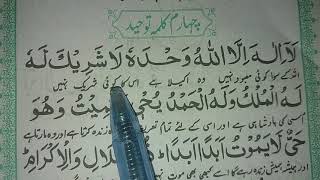 چہارم کلمہ توحید
لَآ اِلٰهَ اِلَّا اللّٰهُ وَحْدَهٗ لَا شَرِيْكَ لَهٗ
اللہ کے سوا کوئی معبود نہیں وہ اکیلا ہے اس کا کوئی شریک نہیں
لَهُ الْمُلْكُ وَلَهُ الْحَمْدُ يُحْيٖ وَيُمِيْتُ وَهُوَ
اسی کی بادشاہی ہے اور اسی کے لئے تمام تعریف زندہ کرتا ہے اور وہ مارتا ہے
حَيٌّ لَّا يَمُوْتُ اَبَدًا اَبَدًا ذُو الْجَلَالِ وَالْاِكْرَامِ
اور ہمیشہ ہمیشہ زندہ رہے گا اسے کبھی بھی موت نہیں